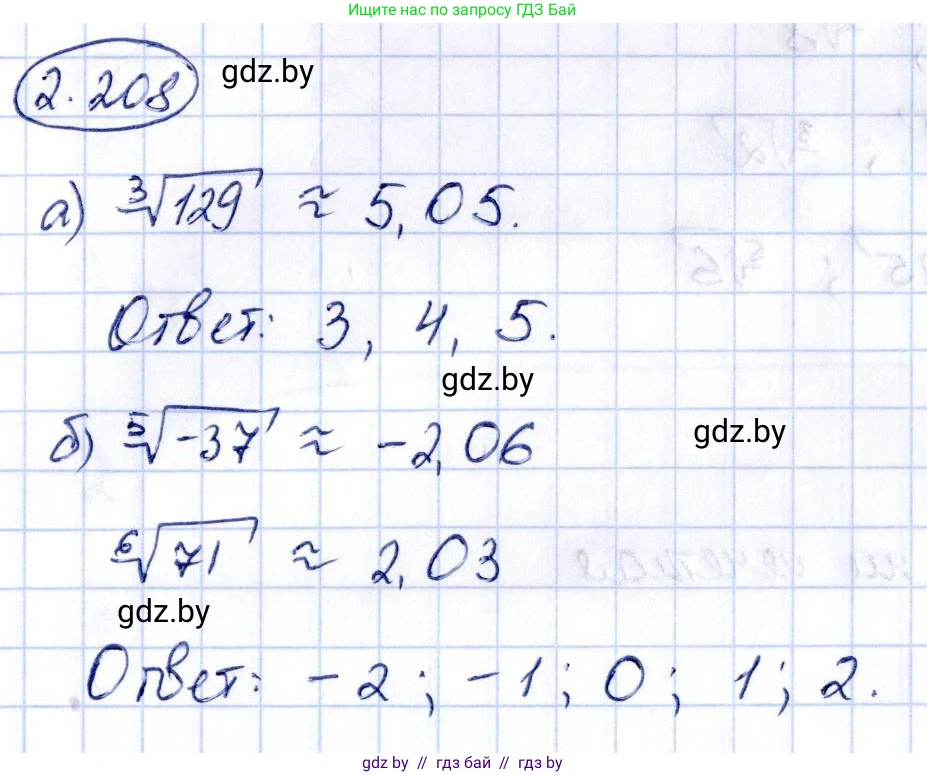 Ищите нас по запросу ГДЗ Бай
2.208 gdz.by
а) ∛129 ≈ 5,05.
Ответ: 3, 4, 5.
gdz.by
б) ⁵√-37 ≈ -2,06
gdz.by
⁶√71 ≈ 2,03
gdz.by
Ответ: -2; -1; 0; 1; 2.
gdz.by // гдз бай // гдз by